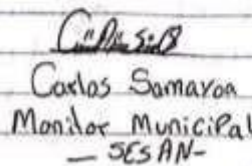 Carlos Samayoa
Monitor Municipal
— SESAN-